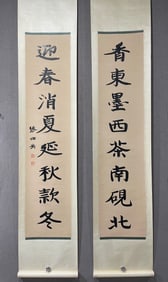 香東墨西茶南硯北
迎春消夏延秋款冬